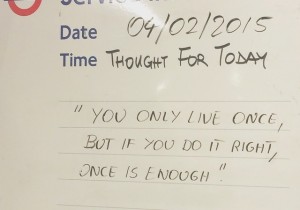 Date 04/02/2015
Time THOUGHT FOR TODAY
"YOU ONLY LIVE ONCE,
BUT IF YOU DO IT RIGHT,
ONCE IS ENOUGH".